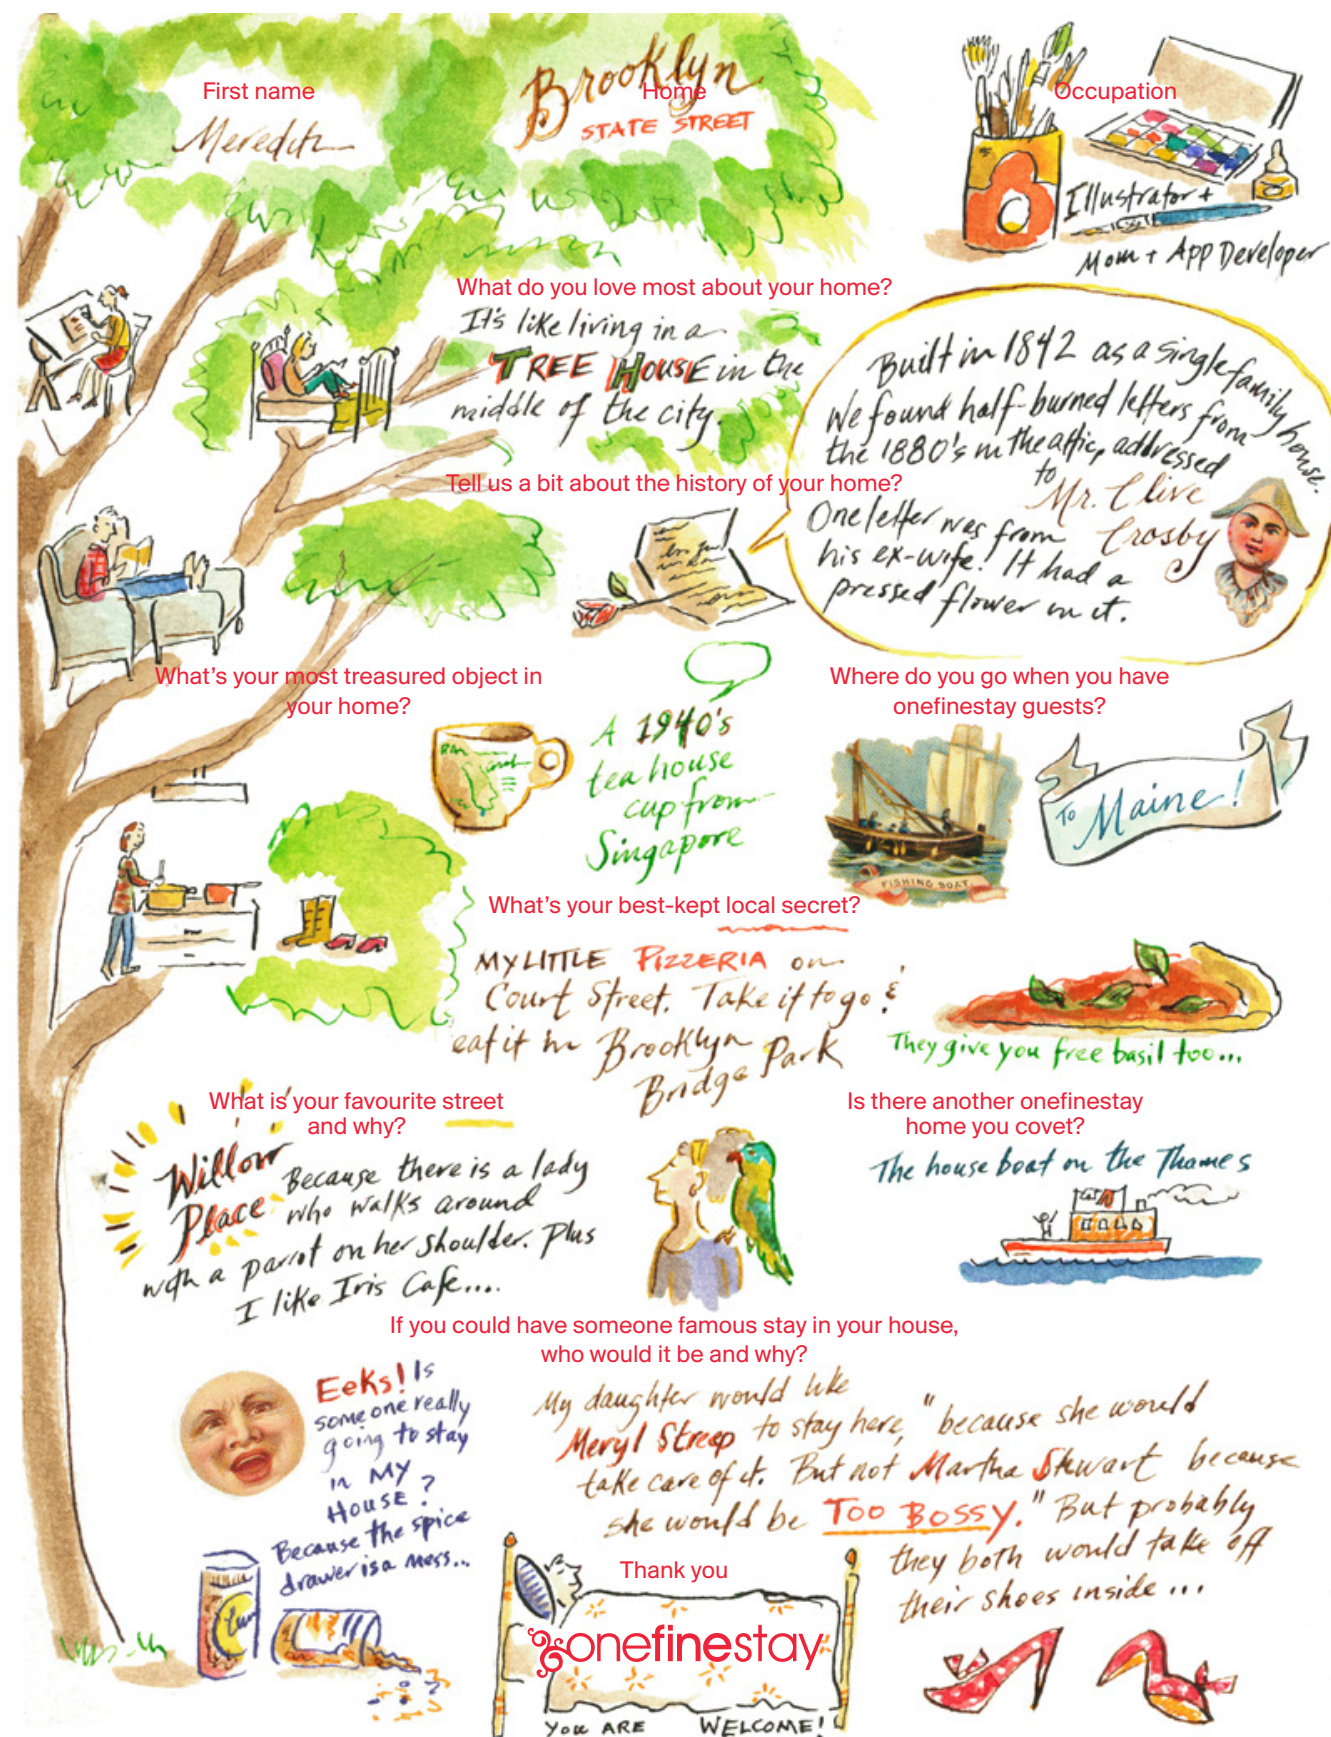 First name
Meredith
Home
Brooklyn
STATE STREET
Occupation
Illustrator +
Mom + App Developer
What do you love most about your home?
It's like living in a
TREE HOUSE in the
middle of the city.
Tell us a bit about the history of your home?
Built in 1842 as a single family house.
We found half-burned letters from
the 1880's in the attic, addressed
to Mr. Clive
Crosby
One letter was from
his ex-wife! It had a
pressed flower in it.
What's your most treasured object in
your home?
A 1940's
tea house
cup from
Singapore
Where do you go when you have
onefinestay guests?
FISHING BOAT.
To Maine!
What's your best-kept local secret?
MY LITTLE PIZZERIA on
Court Street. Take it to go &
eat it in Brooklyn
Bridge Park
They give you free basil too...
What is your favourite street
and why?
Willow
Place
Because there is a lady
who walks around
with a parrot on her shoulder. Plus
I like Iris Cafe....
Is there another onefinestay
home you covet?
The house boat on the Thames
If you could have someone famous stay in your house,
who would it be and why?
Eeks! Is
someone really
going to stay
in MY
HOUSE?
Because the spice
drawer is a mess...
My daughter would like
Meryl Streep to stay here, "because she would
take care of it. But not Martha Stewart because
she would be TOO BOSSY." But probably
they both would take off
their shoes inside...
Thank you
onefinestay
YOU ARE WELCOME!